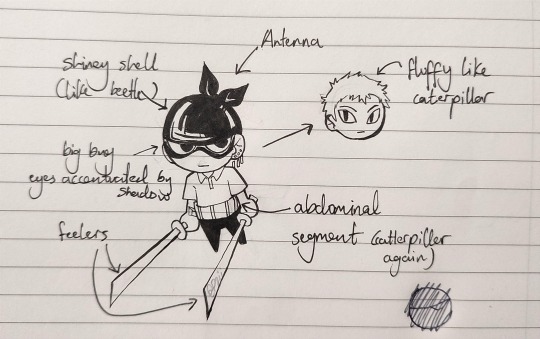 Antenna
shiney shell
(like beetle)
fluffy like
caterpillar
big bug
eyes accentuated by
shadow
abdominal
segment (catterpiller
again)
feelers